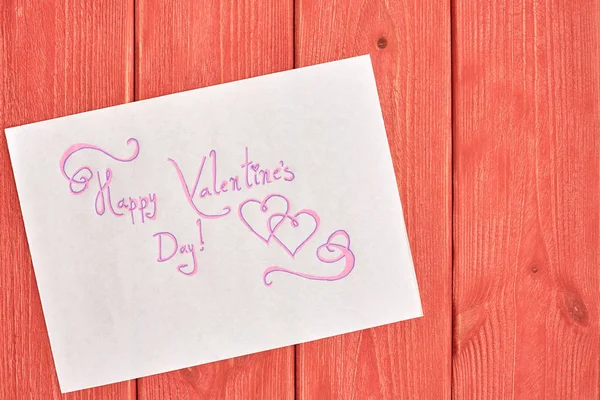 Happy Valentine's
Day!